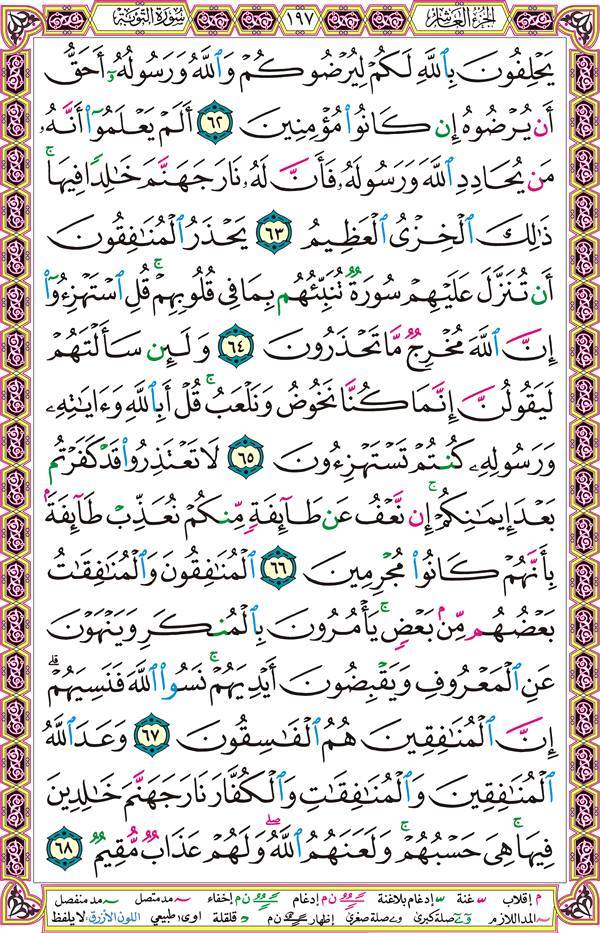 الجزء العاشر ١٩٧ سورة التوبة
يَحْلِفُونَ بِٱللَّهِ لَكُمْ لِيُرْضُوكُمْ وَٱللَّهُ وَرَسُولُهُۥٓ أَحَقُّ
أَن يُرْضُوهُ إِن كَانُوا۟ مُؤْمِنِينَ ٦٢ أَلَمْ يَعْلَمُوٓا۟ أَنَّهُۥ
مَن يُحَادِدِ ٱللَّهَ وَرَسُولَهُۥ فَأَنَّ لَهُۥ نَارَ جَهَنَّمَ خَٰلِدًا فِيهَا ۚ
ذَٰلِكَ ٱلْخِزْىُ ٱلْعَظِيمُ ٦٣ يَحْذَرُ ٱلْمُنَٰفِقُونَ
أَن تُنَزَّلَ عَلَيْهِمْ سُورَةٌ تُنَبِّئُهُم بِمَا فِى قُلُوبِهِمْ ۚ قُلِ ٱسْتَهْزِءُوٓا۟
إِنَّ ٱللَّهَ مُخْرِجٌ مَّا تَحْذَرُونَ ٦٤ وَلَئِن سَأَلْتَهُمْ
لَيَقُولُنَّ إِنَّمَا كُنَّا نَخُوضُ وَنَلْعَبُ ۚ قُلْ أَبِٱللَّهِ وَءَايَٰتِهِۦ
وَرَسُولِهِۦ كُنتُمْ تَسْتَهْزِءُونَ ٦٥ لَا تَعْتَذِرُوا۟ قَدْ كَفَرْتُم
بَعْدَ إِيمَٰنِكُمْ ۚ إِن نَّعْفُ عَن طَآئِفَةٍ مِّنكُمْ نُعَذِّبْ طَآئِفَةًۢ
بِأَنَّهُمْ كَانُوا۟ مُجْرِمِينَ ٦٦ ٱلْمُنَٰفِقُونَ وَٱلْمُنَٰفِقَٰتُ
بَعْضُهُم مِّنۢ بَعْضٍ ۚ يَأْمُرُونَ بِٱلْمُنكَرِ وَيَنْهَوْنَ
عَنِ ٱلْمَعْرُوفِ وَيَقْبِضُونَ أَيْدِيَهُمْ ۚ نَسُوا۟ ٱللَّهَ فَنَسِيَهُمْ ۗ
إِنَّ ٱلْمُنَٰفِقِينَ هُمُ ٱلْفَٰسِقُونَ ٦٧ وَعَدَ ٱللَّهُ
ٱلْمُنَٰفِقِينَ وَٱلْمُنَٰفِقَٰتِ وَٱلْكُفَّارَ نَارَ جَهَنَّمَ خَٰلِدِينَ
فِيهَا ۚ هِىَ حَسْبُهُمْ ۚ وَلَعَنَهُمُ ٱللَّهُ ۖ وَلَهُمْ عَذَابٌ مُّقِيمٌ ٦٨
م إقلاب غنة إدغام بلاغنة ن م إدغام ن م إخفاء مد متصل مد منفصل
المد اللازم صلة كبرى صلة صغرى إظهار ن م قلقلة اوى: طبيعي اللون الأزرق: لا يلفظ